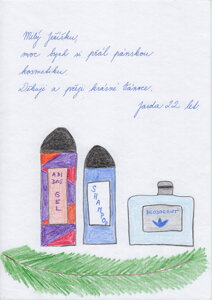 Milý Ježíšku,
moc bych si přál pánskou
kosmetiku.
Děkuji a přeji krásné Vánoce.
Jarda 22 let
ADIDAS
GEL
SHAMPON
DEODORANT